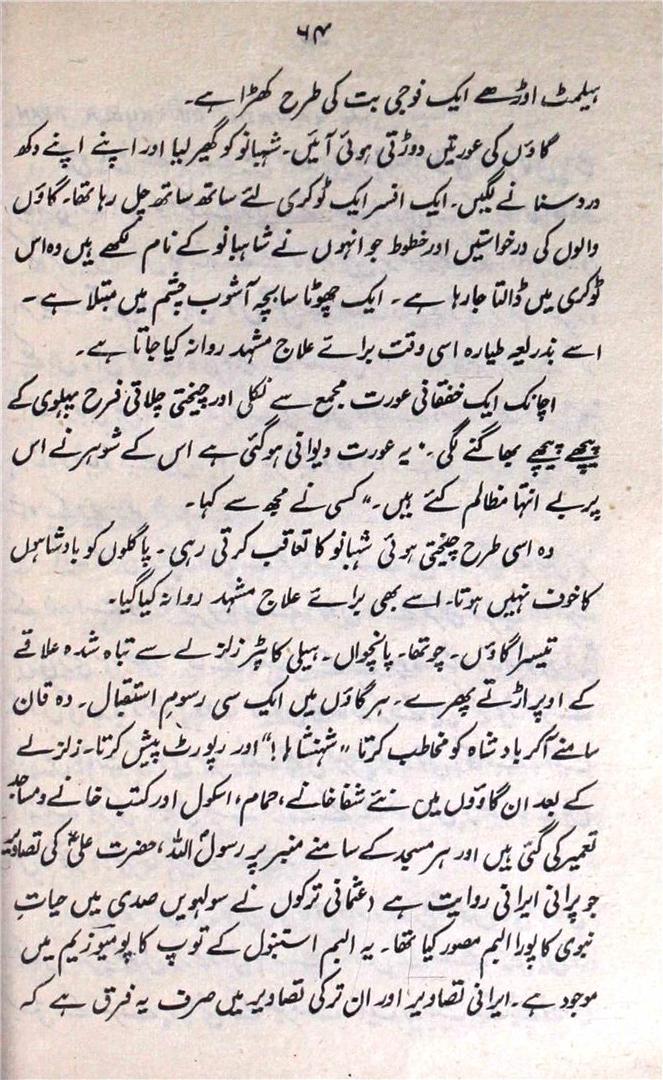 ۶۴
ہیلمٹ اوڑھے ایک فوجی بت کی طرح کھڑا ہے۔
گاؤں کی عورتیں دوڑتی ہوئی آئیں۔ شہبانو کو گھیر لیا اور اپنے اپنے دکھ
درد سنانے لگیں۔ ایک افسر ایک ٹوکری لئے ساتھ ساتھ چل رہا تھا۔ گاؤں
والوں کی درخواستیں اور خطوط جو انہوں نے شاہبانو کے نام لکھے ہیں وہ اس
ٹوکری میں ڈالتا جا رہا ہے۔ ایک چھوٹا سا بچہ آشوب چشم میں مبتلا ہے۔
اسے بذریعہ طیارہ اسی وقت برائے علاج مشہد روانہ کیا جاتا ہے۔
اچانک ایک خفقانی عورت مجمع سے نکلی اور چیختی چلاتی فرح پہلوی کے
پیچھے پیچھے بھاگنے لگی۔ "یہ عورت دیوانی ہو گئی ہے اس کے شوہر نے اس
پر بے انتہا مظالم کئے ہیں۔" کسی نے مجھ سے کہا۔
وہ اسی طرح چیختی ہوئی شہبانو کا تعاقب کرتی رہی۔ پاگلوں کو بادشاہوں
کا خوف نہیں ہوتا۔ اسے بھی برائے علاج مشہد روانہ کیا گیا۔
تیسرا گاؤں۔ چوتھا۔ پانچواں۔ ہیلی کاپٹر زلزلے سے تباہ شدہ علاقے
کے اوپر اڑتے پھرے۔ ہر گاؤں میں ایک سی رسومِ استقبال۔ دہ قان
سامنے آ کر بادشاہ کو مخاطب کرتا "شہنشاہا!" اور رپورٹ پیش کرتا۔ زلزلے
کے بعد ان گاؤوں میں نئے شفاخانے، حمام، اسکول اور کتب خانے و مساجد
تعمیر کی گئی ہیں اور ہر مسجد کے سامنے منبر پر رسولؐ اللہ، حضرت علیؓ کی تصاویر
جو پرانی ایرانی روایت ہے (عثمانی ترکوں نے سولہویں صدی میں حیاتِ
نبوی کا پورا البم مصور کیا تھا۔ یہ البم استنبول کے توپ کاپو میوزیم میں
موجود ہے۔ ایرانی تصاویر اور ان ترکی تصاویر میں صرف یہ فرق ہے کہ